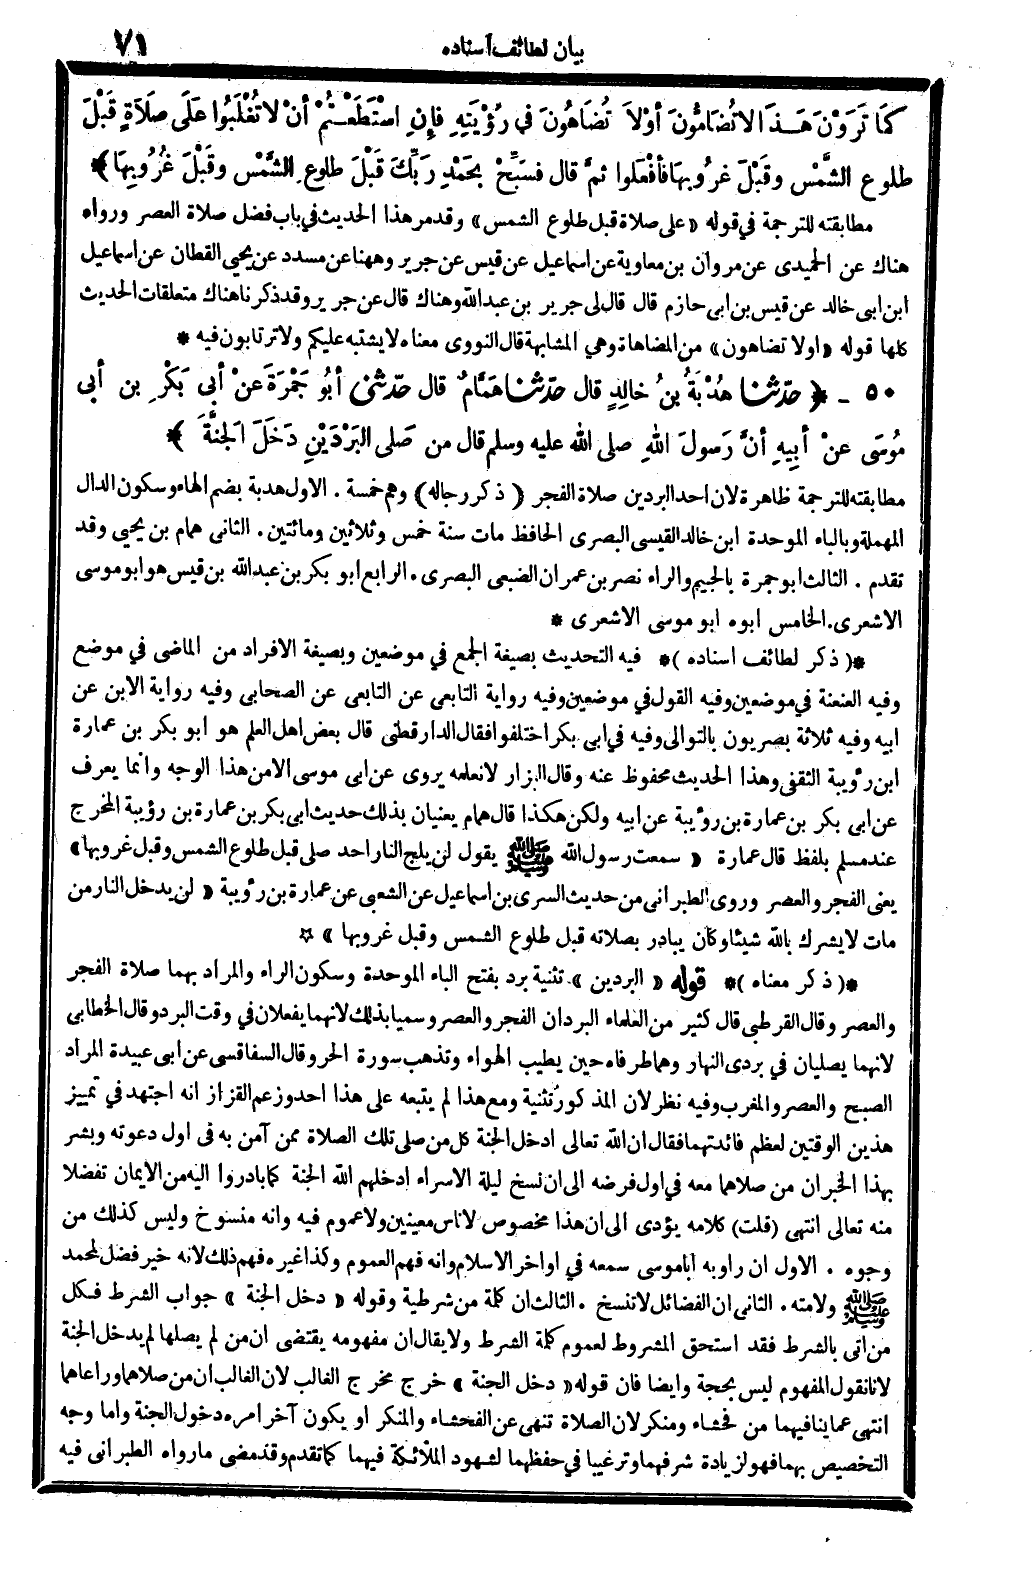 بيان لطائف أسناده ٧١
كَمَا تَرَوْنَ هَـذَا لاتُضَامُّونَ أوْلاَ تُضَاهُونَ فِي رُؤْيَتِهِ فإنِ اسْتَطَعْتُمْ أنْ لاتُغْلَبُوا عَلَى صَلاَةٍ قَبْلَ
طلوع الشَّمْسِ وقَبْلَ غرُوبِهَا فأفْعَلوا ثمَّ قال فسَبِّحْ بِحَمْدِ رَبِّكَ قَبْلَ طلوعِ الشَّمْسِ وقَبْلَ غُرُوبِهَا ﴾ *
مطابقته للترجمة في قوله « على صلاة قبل طلوع الشمس » وقد مر هذا الحديث في باب فضل صلاة العصر ورواه
هناك عن الحميدى عن مروان بن معاوية عن اسماعيل عن قيس عن جرير وههنا عن مسدد عن يحيى القطان عن اسماعيل
ابن ابى خالد عن قيس بن ابى حازم قال قال لى جرير بن عبد الله وهناك قال عن جرير وقد ذكرنا هناك متعلقات الحديث
كلها قوله « اولا تضاهون » من المضاهاة وهي المشابهة قال النووى معناه لا يشتبه عليكم ولا ترتابون فيه *
٥٠ - * ﴿ حدّثنا هُدْبَةُ بنُ خالِدٍ قال حدّثنا هَمَّامٌ قال حدّثنى أبُو جَمْرَةَ عنْ أبى بَكْرِ بن أبى
مُوسَى عنْ أبِيهِ أنَّ رَسولَ اللهِ صلى الله عليه وسلم قال من صَلى البَرْدَيْنِ دَخَلَ الجَنَّةَ ﴾ *
مطابقته للترجمة ظاهرة لان احد البردين صلاة الفجر ( ذكر رجاله ) وهم خمسة . الاول هدبة بضم الهاء وسكون الدال
المهملة وبالباء الموحدة ابن خالد القيسى البصرى الحافظ مات سنة خمس وثلاثين ومائتين . الثانى همام بن يحيى وقد
تقدم . الثالث ابو جمرة بالجيم والراء نصر بن عمران الضبعى البصرى . الرابع ابو بكر بن عبد الله بن قيس هو ابو موسى
الاشعرى . الخامس ابوه ابو موسى الاشعرى *
*( ذكر لطائف اسناده )* فيه التحديث بصيغة الجمع في موضعين وبصيغة الافراد من الماضى في موضع
وفيه العنعنة في موضعين وفيه القول في موضعين وفيه رواية التابعى عن التابعى عن الصحابى وفيه رواية الابن عن
ابيه وفيه ثلاثة بصريون بالتوالى وفيه في ابى بكر اختلفوا فقال الدار قطنى قال بعض اهل العلم هو ابو بكر بن عمارة
ابن رؤيبة الثقفى وهذا الحديث محفوظ عنه وقال البزار لا نعلمه يروى عن ابى موسى الا من هذا الوجه وانما يعرف
عن ابى بكر بن عمارة بن رؤيبة عن ابيه ولكن هكذا قال همام يعنيان بذلك حديث ابى بكر بن عمارة بن رؤيبة المخرج
عند مسلم بلفظ قال عمارة « سمعت رسول الله ﷺ يقول لن يلج النار احد صلى قبل طلوع الشمس وقبل غروبها »
يعنى الفجر والعصر وروى الطبرانى من حديث السرى بن اسماعيل عن الشعبى عن عمارة بن رؤيبة « لن يدخل النار من
مات لا يشرك بالله شيئا وكان يبادر بصلاته قبل طلوع الشمس وقبل غروبها » ☆
*( ذكر معناه )* قوله « البردين » تثنية برد بفتح الباء الموحدة وسكون الراء والمراد بهما صلاة الفجر
والعصر وقال القرطبى قال كثير من العلماء البردان الفجر والعصر وسميا بذلك لانهما يفعلان في وقت البرد وقال الخطابى
لانهما يصليان في بردى النهار وهما طرفاه حين يطيب الهواء وتذهب سورة الحر وقال السفاقسى عن ابى عبيدة المراد
الصبح والعصر والمغرب وفيه نظر لان المذكور تثنية ومع هذا لم يتبعه على هذا احد وزعم القزاز انه اجتهد في تمييز
هذين الوقتين لعظم فائدتهما فقال ان الله تعالى ادخل الجنة كل من صلى تلك الصلاة ممن آمن به فى اول دعوته وبشر
بهذا الخبر ان من صلاهما معه في اول فرضه الى ان نسخ ليلة الاسراء ادخلهم الله الجنة كما بادروا اليه من الايمان تفضلا
منه تعالى انتهى (قلت) كلامه يؤدى الى ان هذا مخصوص لاناس معينين ولا عموم فيه وانه منسوخ وليس كذلك من
وجوه . الاول ان راويه أبا موسى سمعه في اواخر الاسلام وانه فهم العموم وكذا غيره فهم ذلك لانه خير فضل لمحمد
ﷺ ولامته . الثانى ان الفضائل لا تنسخ . الثالث ان كلمة من شرطية وقوله « دخل الجنة » جواب الشرط فكل
من اتى بالشرط فقد استحق المشروط لعموم كلمة الشرط ولا يقال ان مفهومه يقتضى ان من لم يصلها لم يدخل الجنة
لانا نقول المفهوم ليس بحجة وايضا فان قوله « دخل الجنة » خرج مخرج الغالب لان الغالب ان من صلاهما وراعاهما
انتهى عما ينافيهما من فحشاء ومنكر لان الصلاة تنهى عن الفحشاء والمنكر او يكون آخر امره دخول الجنة واما وجه
التخصيص بهما فهو لزيادة شرفهما وترغيبا في حفظهما لشهود الملائكة فيهما كما تقدم وقد مضى ما رواه الطبرانى فيه